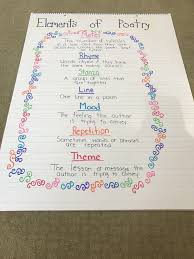 Elements of Poetry
The number of syllables
Rhyme
Words rhyme if they have
the same ending sounds
Stanza
A group of lines that
are together
Line
One line in a poem
Mood
The feeling the author
is trying to convey
Repetition
Sometimes words or phrases
are repeated
Theme
The lesson or message the
author is trying to convey